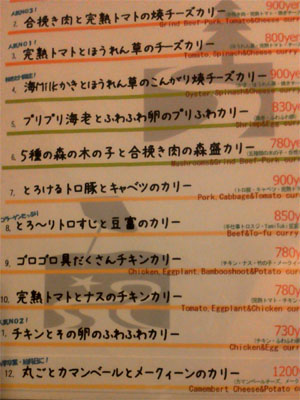 人気NO3!
2. 合挽き肉と完熟トマトの焼チーズカリー 900yen
Grind Beef-Pork,Tomato&Cheese curry
人気NO1!
3. 完熟トマトとほうれん草のチーズカリー 800yen
Tomato,Spinach&Cheese curry
4. 海のミルクかきとほうれん草のこんがり焼チーズカリー 900ye
Oyster,Spinach&Cheese
5. プリプリ海老とふわふわ卵のプリふわカリー 830y
Shrimp&Egg
6. 5種の森の木の子と合挽き肉の森盛カリー 780y
Mashroom&Grind Beef-Pork cu
7. とろけるトロ豚とキャベツのカリー 900y
Pork,Cabbage&Tomato
コラーゲンたっぷり
8. とろ〜りトロすじと豆富のカリー 850y
Beef&To-fu curry
9. ゴロゴロ具だくさんチキンカリー 780y
Chicken,Eggplant,Bambooshoot&Potato cu
10. 完熟トマトとナスのチキンカリー 780y
Tomato,Eggplant&Chicken cur
人気NO2!
1. チキンとその卵のふわふわカリー 730y
Chicken&Egg curr
12. 丸ごとカマンベールとメークィーンのカリー 1200
Camembert Cheese&Potato